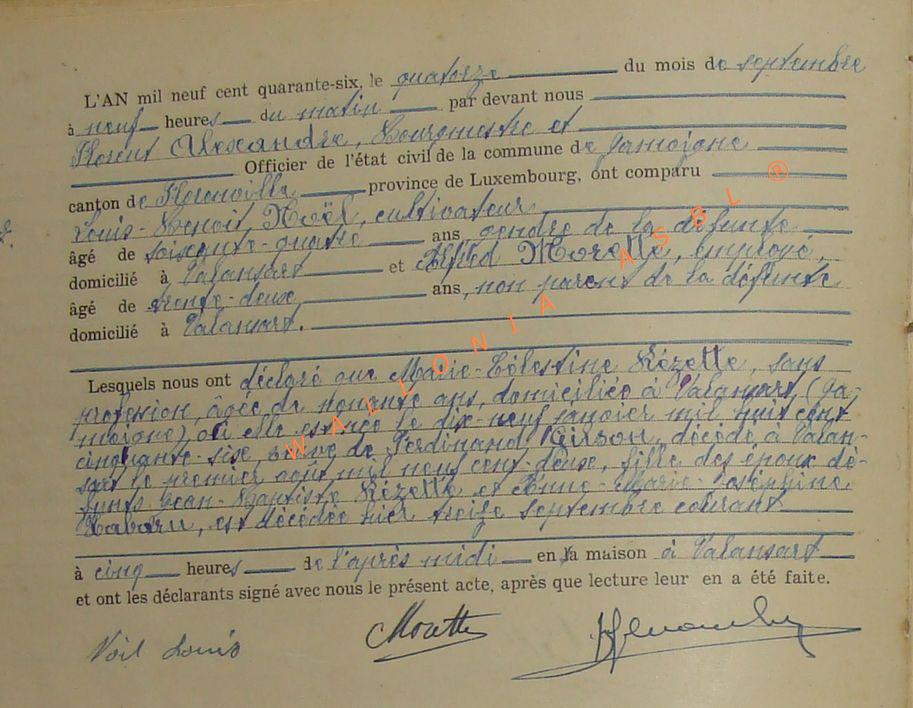 L'AN mil neuf cent quarante-six, le quatorze du mois de septembre
à neuf heures du matin par devant nous
Florent Alexandre, Bourgmestre et
Officier de l'état civil de la commune de Jamoigne
canton de Florenville province de Luxembourg, ont comparu
Louis-Benoit Noël, cultivateur
âgé de soixante-quatre ans, gendre de la défunte
domicilié à Valansart et Alfred Morette, employé,
âgé de trente-deux ans, non parent de la défunte
domicilié à Valansart.
Lesquels nous ont déclaré que Marie-Célestine Lézette, sans
profession, âgée de nonante ans, domiciliée à Valansart, (Ja-
moigne), où elle est née le dix-neuf janvier mil huit cent
cinquante-six, veuve de Ferdinand, décédé à Valan-
sart le premier août mil neuf cent-deux, fille des époux dé-
funts Jean-Baptiste Lézette et Anne-Marie-Joséphine
est décédée hier treize septembre courant
à cinq heures de l'après midi en la maison à Valansart
et ont les déclarants signé avec nous le présent acte, après que lecture leur en a été faite.
Noël Louis
WALLONIA ASBL ®